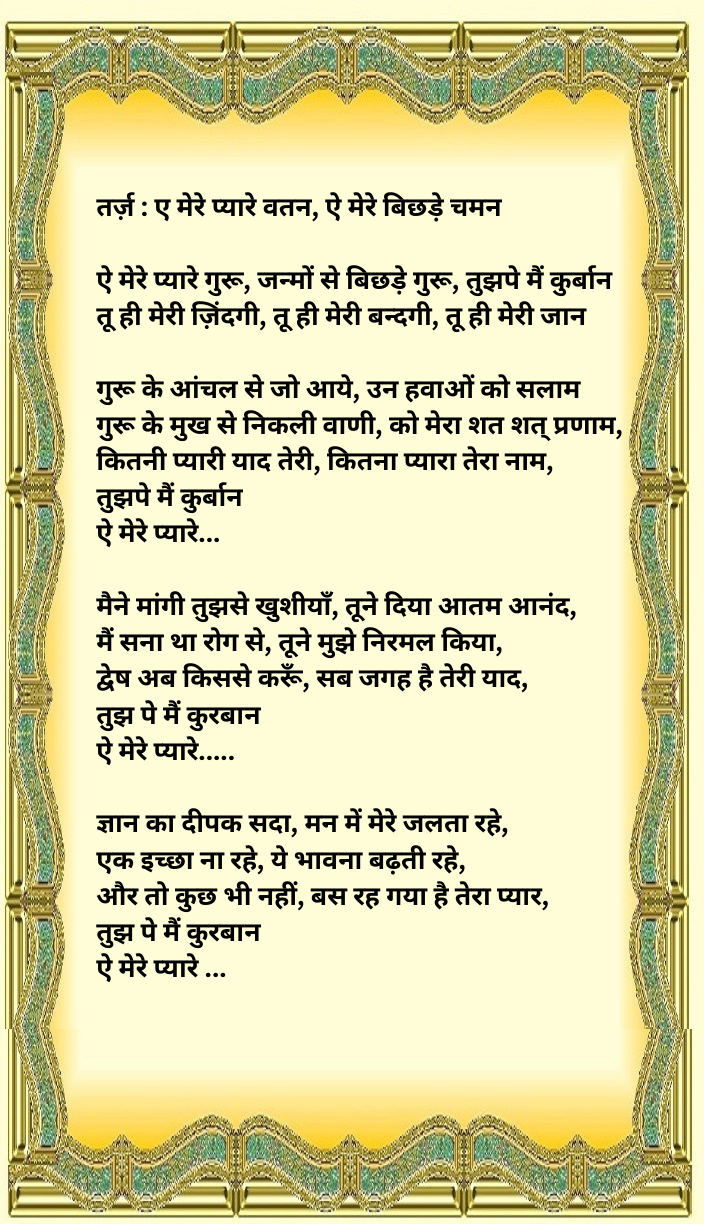 तर्ज़ : ए मेरे प्यारे वतन, ऐ मेरे बिछड़े चमन
ऐ मेरे प्यारे गुरू, जन्मों से बिछड़े गुरू, तुझपे मैं कुर्बान
तू ही मेरी ज़िंदगी, तू ही मेरी बन्दगी, तू ही मेरी जान
गुरू के आंचल से जो आये, उन हवाओं को सलाम
गुरू के मुख से निकली वाणी, को मेरा शत शत् प्रणाम,
कितनी प्यारी याद तेरी, कितना प्यारा तेरा नाम,
तुझपे मैं कुर्बान
ऐ मेरे प्यारे...
मैने मांगी तुझसे खुशीयाँ, तूने दिया आतम आनंद,
मैं सना था रोग से, तूने मुझे निरमल किया,
द्वेष अब किससे करूँ, सब जगह है तेरी याद,
तुझ पे मैं कुरबान
ऐ मेरे प्यारे.....
ज्ञान का दीपक सदा, मन में मेरे जलता रहे,
एक इच्छा ना रहे, ये भावना बढ़ती रहे,
और तो कुछ भी नहीं, बस रह गया है तेरा प्यार,
तुझ पे मैं कुरबान
ऐ मेरे प्यारे ...